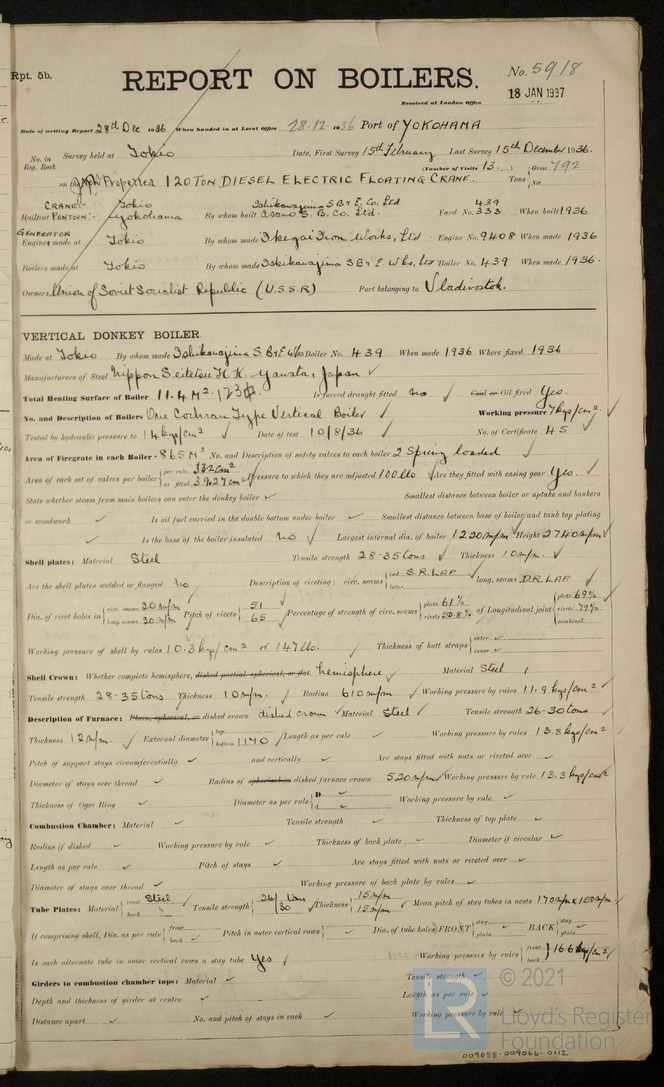 Rpt. 5b.
REPORT ON BOILERS.
No. 5918
Received at London Office 18 JAN 1937
Date of writing Report 28th Dec 1936 When handed in at Local Office 28.12.1936 Port of YOKOHAMA
No. in Reg. Book Survey held at Tokio Date, First Survey 15th February Last Survey 15th December 1936.
(Number of Visits 13.
on the Propelled 120 TON DIESEL ELECTRIC FLOATING CRANE. Tons Gross 792 Net
CRANE:- Tokio Ishikawajima S.B. & E. Co. Ltd 439
Built at PONTOON:- Yokohama By whom built Asano S.B. Co. Ltd. Yard No. 333 When built 1936
GENERATOR
Engines made at Tokio By whom made Ikegai Iron Works, Ltd Engine No. 9408 When made 1936
Boilers made at Tokio By whom made Ishikawajima S.B. & E. Wks. Ltd Boiler No. 439 When made 1936.
Owners Union of Soviet Socialist Republic (U.S.S.R) Port belonging to Vladivostok.
VERTICAL DONKEY BOILER.
Made at Tokio By whom made Ishikawajima S.B. & E. Wks Boiler No. 439 When made 1936 Where fixed 1936
Manufacturers of Steel Nippon Seitetsu K.K. Yawata, Japan ✓
Total Heating Surface of Boiler 11.4 M². Is forced draught fitted no ✓ Coal or Oil fired Yes.
No. and Description of Boilers One Cochran Type Vertical Boiler ✓ Working pressure 7 kg/cm². ✓
Tested by hydraulic pressure to 14 kg/cm² ✓ Date of test 10/8/36 ✓ No. of Certificate 45 ✓
Area of Firegrate in each Boiler .865 M² No. and Description of safety valves to each boiler 2 Spring loaded ✓
Area of each set of valves per boiler per rule as fitted Pressure to which they are adjusted 100 lbs ✓ Are they fitted with easing gear Yes. ✓
State whether steam from main boilers can enter the donkey boiler ✓ Smallest distance between boiler or uptake and bunkers
or woodwork ✓ Is oil fuel carried in the double bottom under boiler ✓ Smallest distance between base of boiler and tank top plating
✓ Is the base of the boiler insulated no ✓ Largest internal dia. of boiler 1220 m/m ✓ Height 2740 m/m ✓
Shell plates: Material Steel Tensile strength 28-35 tons ✓ Thickness 10 m/m. ✓
Are the shell plates welded or flanged No ✓ Description of riveting: circ. seams end S.R. LAP ✓ inter. long. seams D.R. LAP ✓
Dia. of rivet holes in circ. seams 20 m/m long. seams 20 m/m Pitch of rivets 51 65 Percentage of strength of circ. seams plate 61% rivets 50.8% of Longitudinal joint plate 69% rivets 79% combined
Working pressure of shell by rules 10.3 kg/cm² or 147 lb. ✓ Thickness of butt straps outer ✓ inner ✓
Shell Crown: Whether complete hemisphere, dished partial spherical, or flat hemisphere ✓ Material Steel
Tensile strength 28-35 tons Thickness 10 m/m. ✓ Radius 610 m/m ✓ Working pressure by rules 11.9 kg/cm² ✓
Description of Furnace: Plain, spherical, or dished crown dished crown ✓ Material Steel ✓ Tensile strength 26-30 tons ✓
Thickness 12 m/m. ✓ External diameter top bottom 1140 ✓ Length as per rule ✓ Working pressure by rules 13.3 kg/cm²
Pitch of support stays circumferentially ✓ and vertically ✓ Are stays fitted with nuts or riveted over ✓
Diameter of stays over thread ✓ Radius of spherical or dished furnace crown 520 m/m ✓ Working pressure by rule 13.3 kg/cm² ✓
Thickness of Ogee Ring ✓ Diameter as per rule D ✓ d ✓ Working pressure by rule ✓
Combustion Chamber: Material ✓ Tensile strength ✓ Thickness of top plate ✓
Radius if dished ✓ Working pressure by rule ✓ Thickness of back plate ✓ Diameter if circular ✓
Length as per rule ✓ Pitch of stays ✓ Are stays fitted with nuts or riveted over ✓
Diameter of stays over thread ✓ Working pressure of back plate by rules ✓
Tube Plates: Material front Steel back " Tensile strength 26/30 tons ✓ Thickness 15 m/m 15 m/m Mean pitch of stay tubes in nests 170 m/m x 150 m/m ✓
If comprising shell, Dia. as per rule front back ✓ Pitch in outer vertical rows ✓ Dia. of tube holes FRONT stay ✓ plain ✓ BACK stay ✓ plain ✓
Is each alternate tube in outer vertical rows a stay tube Yes ✓ Working pressure by rules front back 16.6 kg/cm² ✓
Girders to combustion chamber tops: Material ✓ Tensile strength ✓
Depth and thickness of girder at centre ✓ Length as per rule ✓
Distance apart ✓ No. and pitch of stays in each ✓ Working pressure by rule ✓
© 2021
LR Lloyd's Register
Foundation
009058-009066-0112